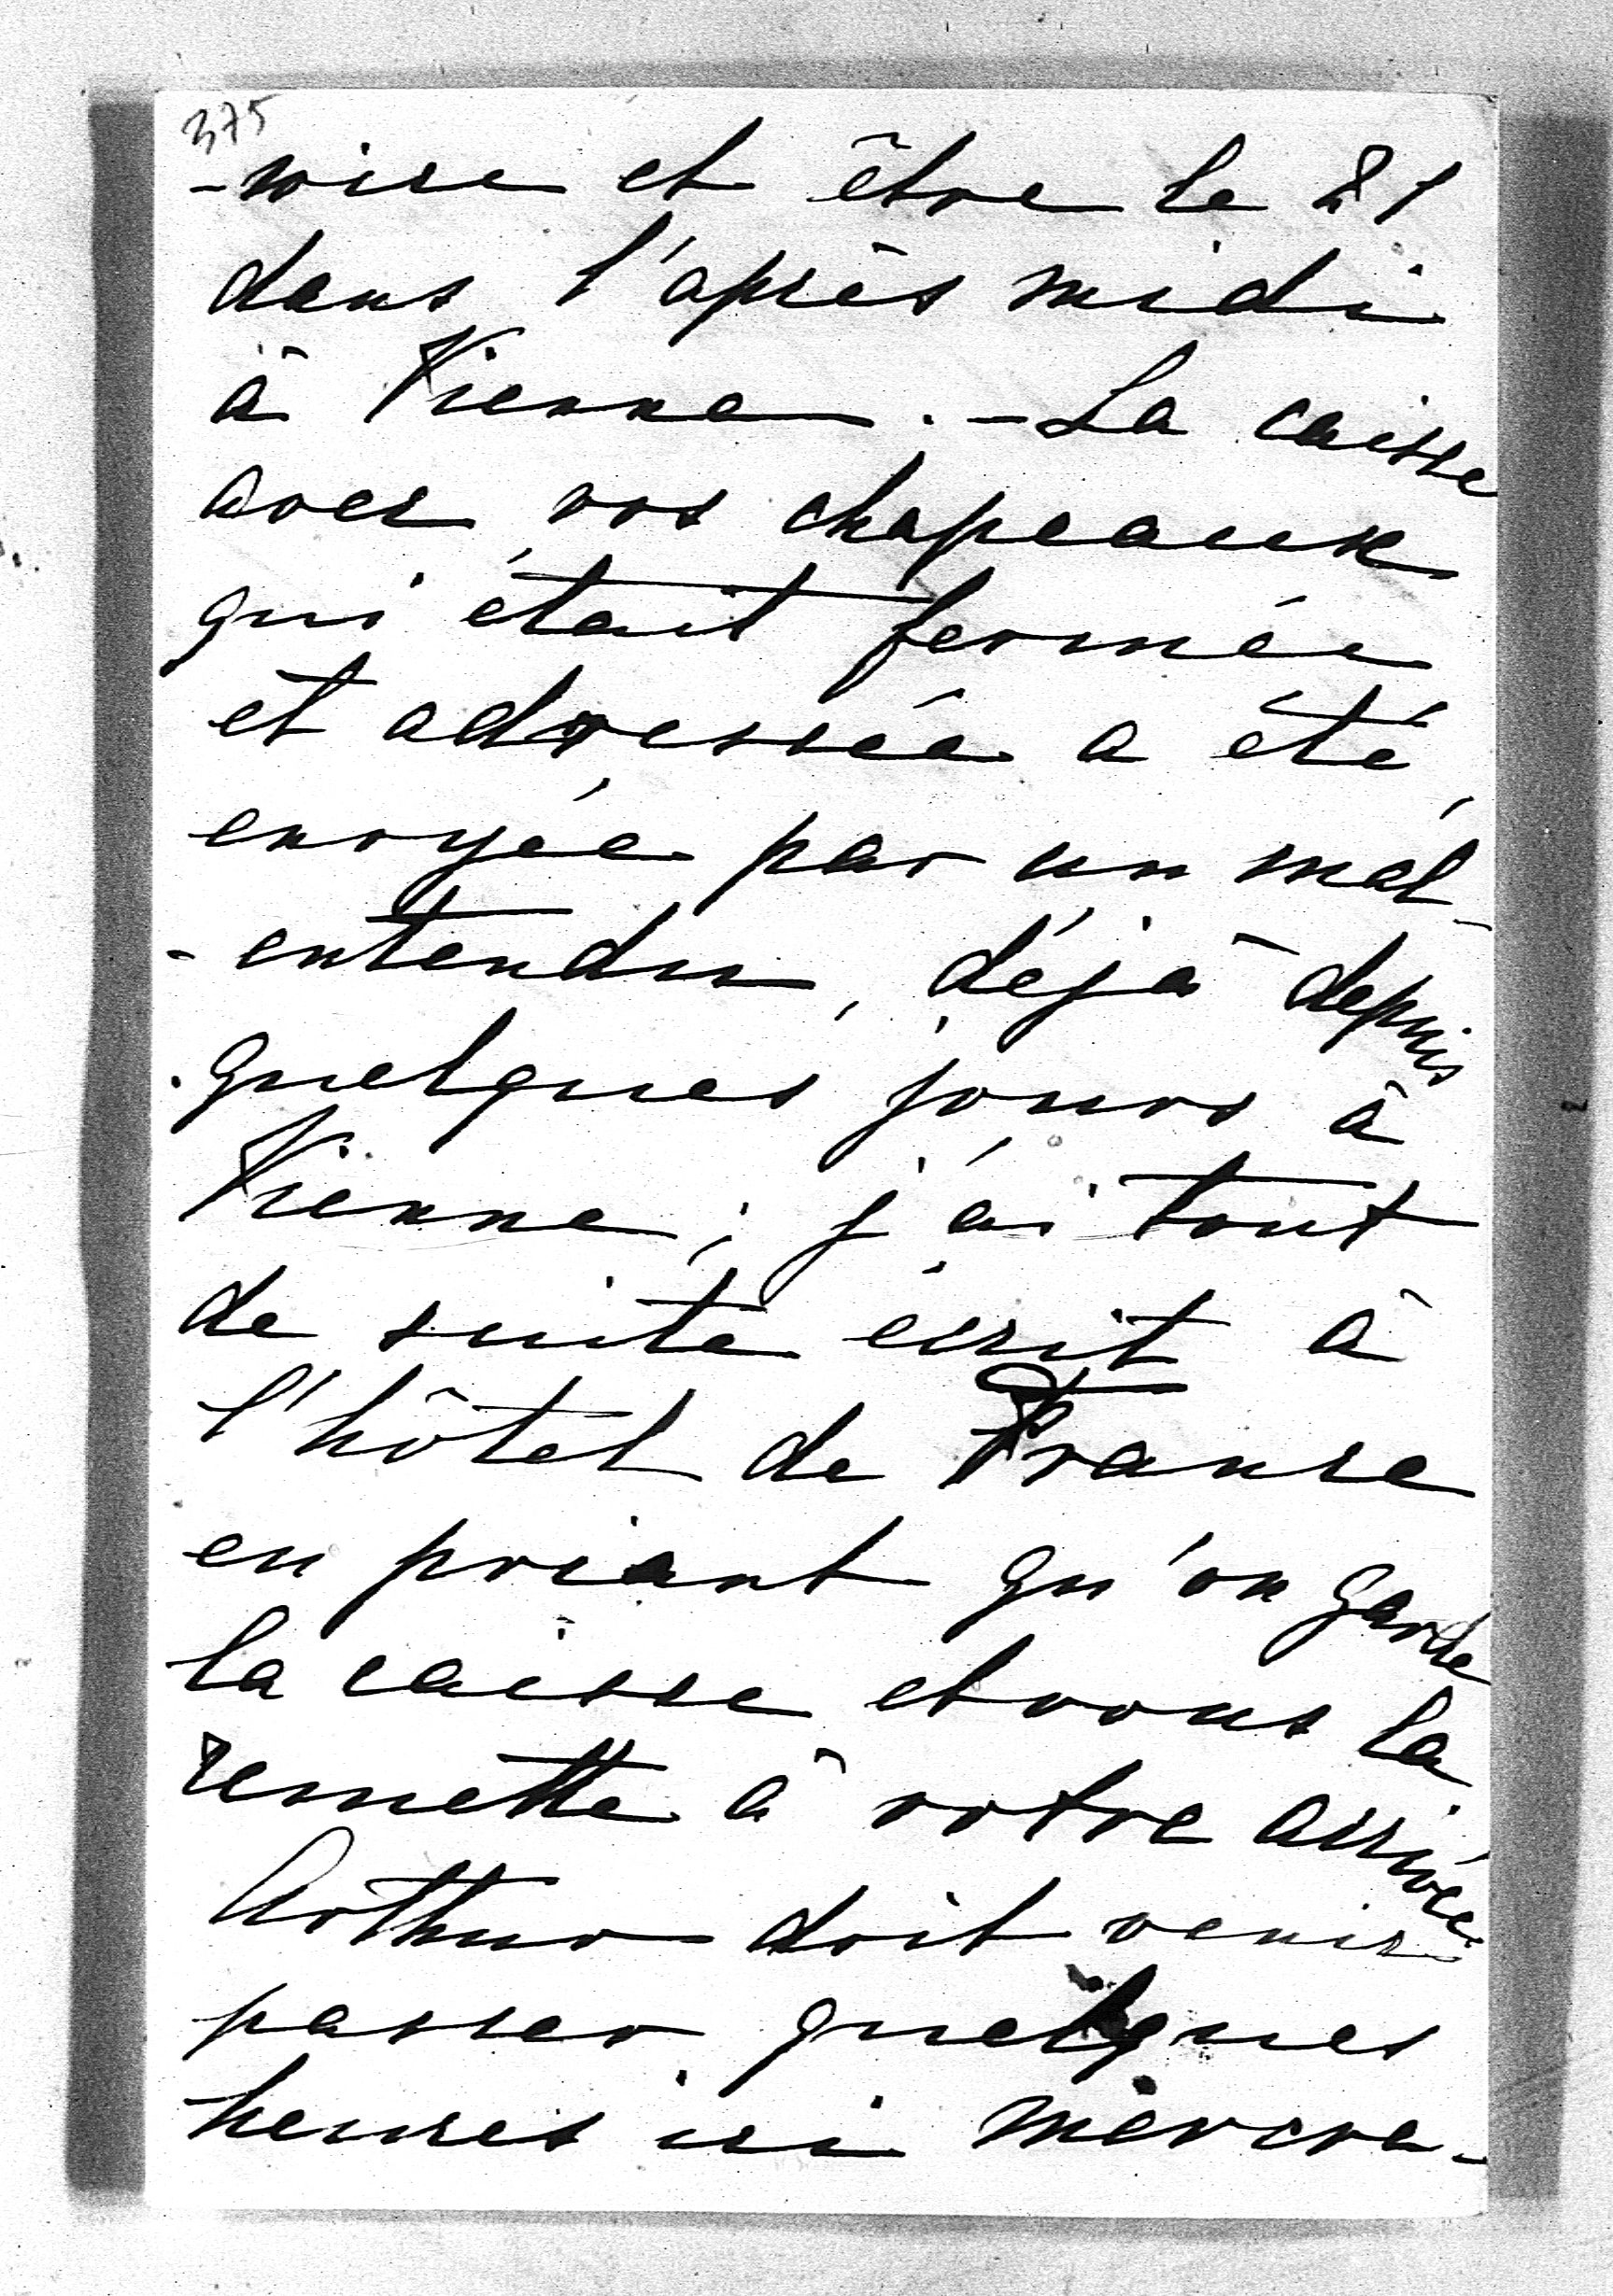 375
-nise et être le 21
dans l'après midi
à Vienne. - La caisse
avec vos chapeaux
qui était fermée
et adressée a été
envoyée par un mal-
-entendu, déjà depuis
quelques jours à
Vienne; j'ai tout
de suite écrit à
l'hôtel de France
en priant qu'on garde
la caisse et vous la
remette à votre arrivée
Arthur doit venir
passer quelques
heures ici mercre-